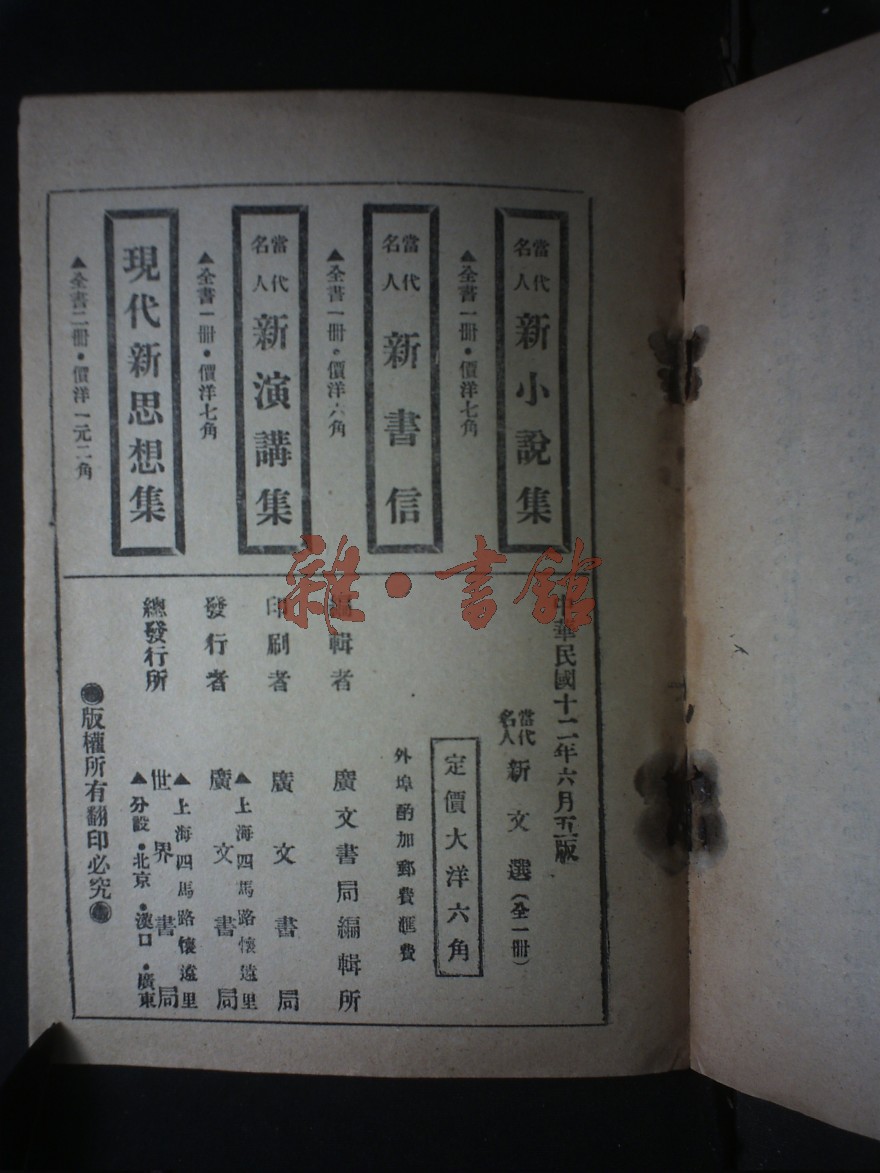 當代名人 新小說集
▲全書一冊•價洋七角
當代名人 新書信
▲全書一冊•價洋六角
當代名人 新演講集
▲全書一冊•價洋七角
現代新思想集
▲全書二冊•價洋一元二角
中華民國十二年六月五版
當代名人 新文選(全一冊)
定價大洋六角
外埠酌加郵費匯費
編輯者 廣文書局編輯所
印刷者 廣文書局
▲上海四馬路懷遠里
發行者 廣文書局
▲上海四馬路懷遠里
總發行所 世界書局
▲分設•北京•漢口•廣東
版權所有翻印必究
雜•書館